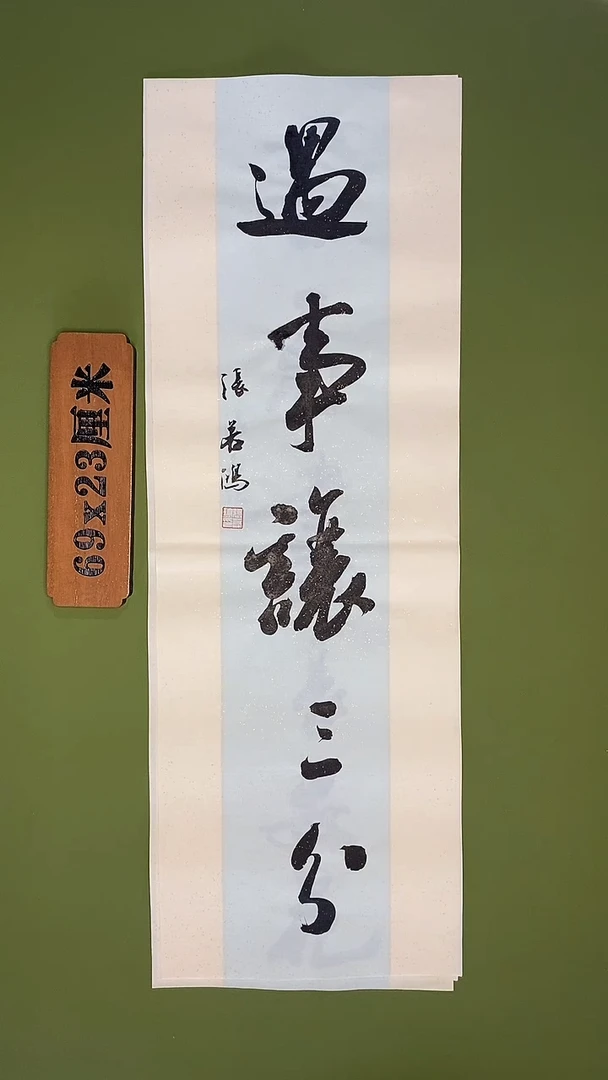 遇事讓三分
張若鴻
69x23厘米